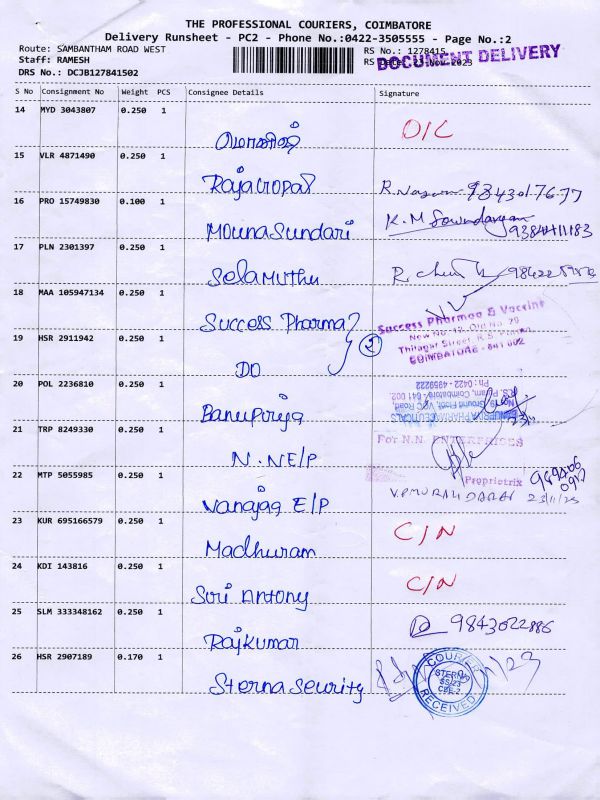 THE PROFESSIONAL COURIERS, COIMBATORE
Delivery Runsheet - PC2 - Phone No.:0422-3505555 - Page No.:2
Route: SAMBANTHAM ROAD WEST RS No.: 1278415
Staff: RAMESH RS 2023
DOCUMENT DELIVERY
DRS No.: DCJB127841502
S No Consignment No Weight PCS Consignee Details Signature
14 MYD 3043807 0.250 1
O/C
15 VLR 4871490 0.250 1
Rajagopal
16 PRO 15749830 0.100 1
Mounasundari K.M 9384411183
17 PLN 2301397 0.250 1
Selamuthu
18 MAA 105947134 0.250 1
Success Pharma
Success Pharmaa & Vaccine
19 HSR 2911942 0.250 1
2
Thilagar Street, R.S. Puram,
COIMBATORE - 641 002
DO
20 POL 2236810 0.250 1
Banupiriya
Ground Floor, VCC Road,
R.S. Puram, Coimbatore - 641 002.
Ph : 0422 - 4959222
21 TRP 8249330 0.250 1
N.N E/P
For N.N. ENTERPRISES
Proprietrix
22 MTP 5055985 0.250 1
Vanajaa E/P
23/11/23
23 KUR 695166579 0.250 1
Madhuram
C/N
24 KDI 143816 0.250 1
Siri Antony
C/N
25 SLM 333348162 0.250 1
Rajkumar
9843022886
26 HSR 2907189 0.170 1
Sterna Seurity
COURIER
RECEIVED